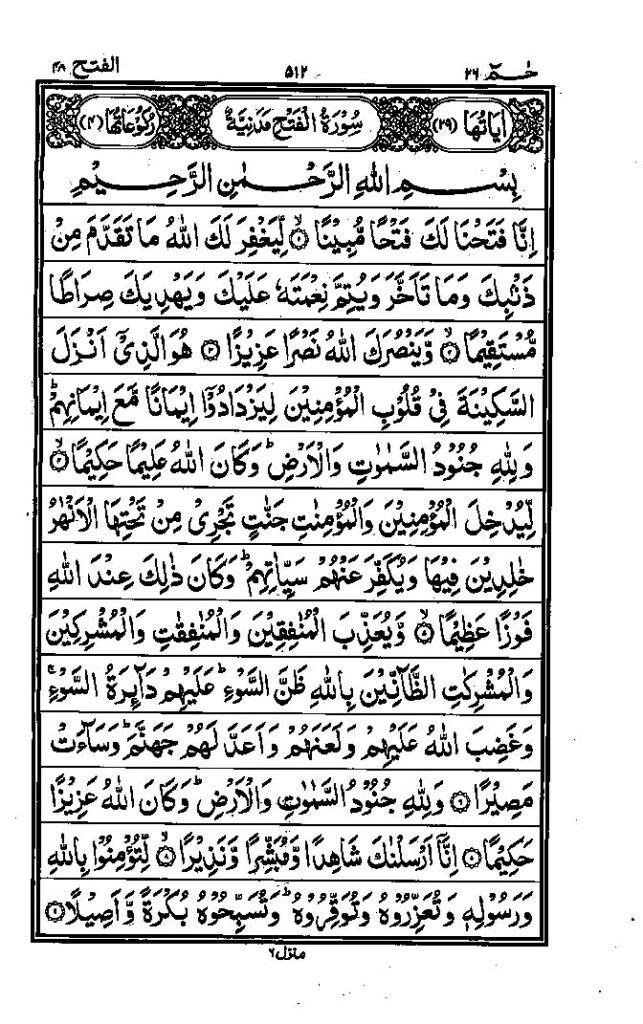 حٰـمٓ ٢٦ ٥١٢ الفتح ٤٨
اٰيَاتُهَا (٢٩) سُوْرَةُ الْفَتْحِ مَدَنِيَّةٌ رُكُوْعَاتُهَا (٤)
بِسْمِ اللهِ الرَّحْمٰنِ الرَّحِيْمِ
اِنَّا فَتَحْنَا لَكَ فَتْحًا مُّبِيْنًا ۙ﴿١﴾ لِّيَغْفِرَ لَكَ اللهُ مَا تَقَدَّمَ مِنْ
ذَنْۢبِكَ وَمَا تَاَخَّرَ وَيُتِمَّ نِعْمَتَهٗ عَلَيْكَ وَيَهْدِيَكَ صِرَاطًا
مُّسْتَقِيْمًا ۙ﴿٢﴾ وَّيَنْصُرَكَ اللهُ نَصْرًا عَزِيْزًا ﴿٣﴾ هُوَ الَّذِيْٓ اَنْزَلَ
السَّكِيْنَةَ فِيْ قُلُوْبِ الْمُؤْمِنِيْنَ لِيَزْدَادُوْٓا اِيْمَانًا مَّعَ اِيْمَانِهِمْ ؕ
وَلِلّٰهِ جُنُوْدُ السَّمٰوٰتِ وَالْاَرْضِ ؕ وَكَانَ اللهُ عَلِيْمًا حَكِيْمًا ۙ﴿٤﴾
لِّيُدْخِلَ الْمُؤْمِنِيْنَ وَالْمُؤْمِنٰتِ جَنّٰتٍ تَجْرِيْ مِنْ تَحْتِهَا الْاَنْهٰرُ
خٰلِدِيْنَ فِيْهَا وَيُكَفِّرَ عَنْهُمْ سَيِّاٰتِهِمْ ؕ وَكَانَ ذٰلِكَ عِنْدَ اللهِ
فَوْزًا عَظِيْمًا ۙ﴿٥﴾ وَّيُعَذِّبَ الْمُنٰفِقِيْنَ وَالْمُنٰفِقٰتِ وَالْمُشْرِكِيْنَ
وَالْمُشْرِكٰتِ الظَّآنِّيْنَ بِاللهِ ظَنَّ السَّوْءِ ؕ عَلَيْهِمْ دَآئِرَةُ السَّوْءِ ۚ
وَغَضِبَ اللهُ عَلَيْهِمْ وَلَعَنَهُمْ وَاَعَدَّ لَهُمْ جَهَنَّمَ ؕ وَسَآءَتْ
مَصِيْرًا ﴿٦﴾ وَلِلّٰهِ جُنُوْدُ السَّمٰوٰتِ وَالْاَرْضِ ؕ وَكَانَ اللهُ عَزِيْزًا
حَكِيْمًا ﴿٧﴾ اِنَّآ اَرْسَلْنٰكَ شَاهِدًا وَّمُبَشِّرًا وَّنَذِيْرًا ۙ﴿٨﴾ لِّتُؤْمِنُوْا بِاللهِ
وَرَسُوْلِهٖ وَتُعَزِّرُوْهُ وَتُوَقِّرُوْهُ ؕ وَتُسَبِّحُوْهُ بُكْرَةً وَّاَصِيْلًا ﴿٩﴾
منزل ٦